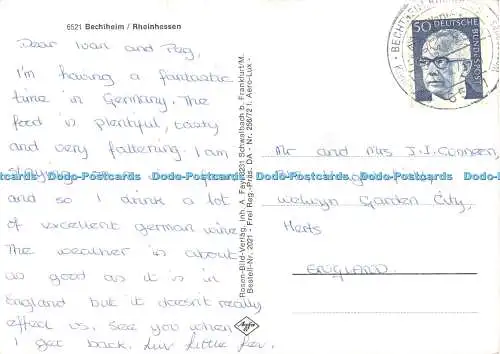 6521 Bechtheim / Rheinhessen
Dear Ivan and Peg,
I'm having a fantastic
time in Germany. The
food is plentiful, tasty
and very fattening. I am
and so I drink a lot
of excellent german wine.
The weather is about
as good as it is in
England but it doesn't really
effect us. See you when
I get back. Luv Little
Rosen-Bild-Verlag, Inh. A. Fay, 6231 Schwalbach b. Frankfurt/M.
Bestell-Nr. 2021 - Frei Reg.-Präs. DA - Nr. 256/72 f. Aero-Lux -
Agfa
50 DEUTSCHE
BUNDESPOST
BECHTHEIM
Mr and Mrs J.I.
Welwyn Garden City,
Herts
ENGLAND.
Dodo-Postcards Dodo-Postcards Dodo-Postcards Dodo-Postcards Dodo-Postcards